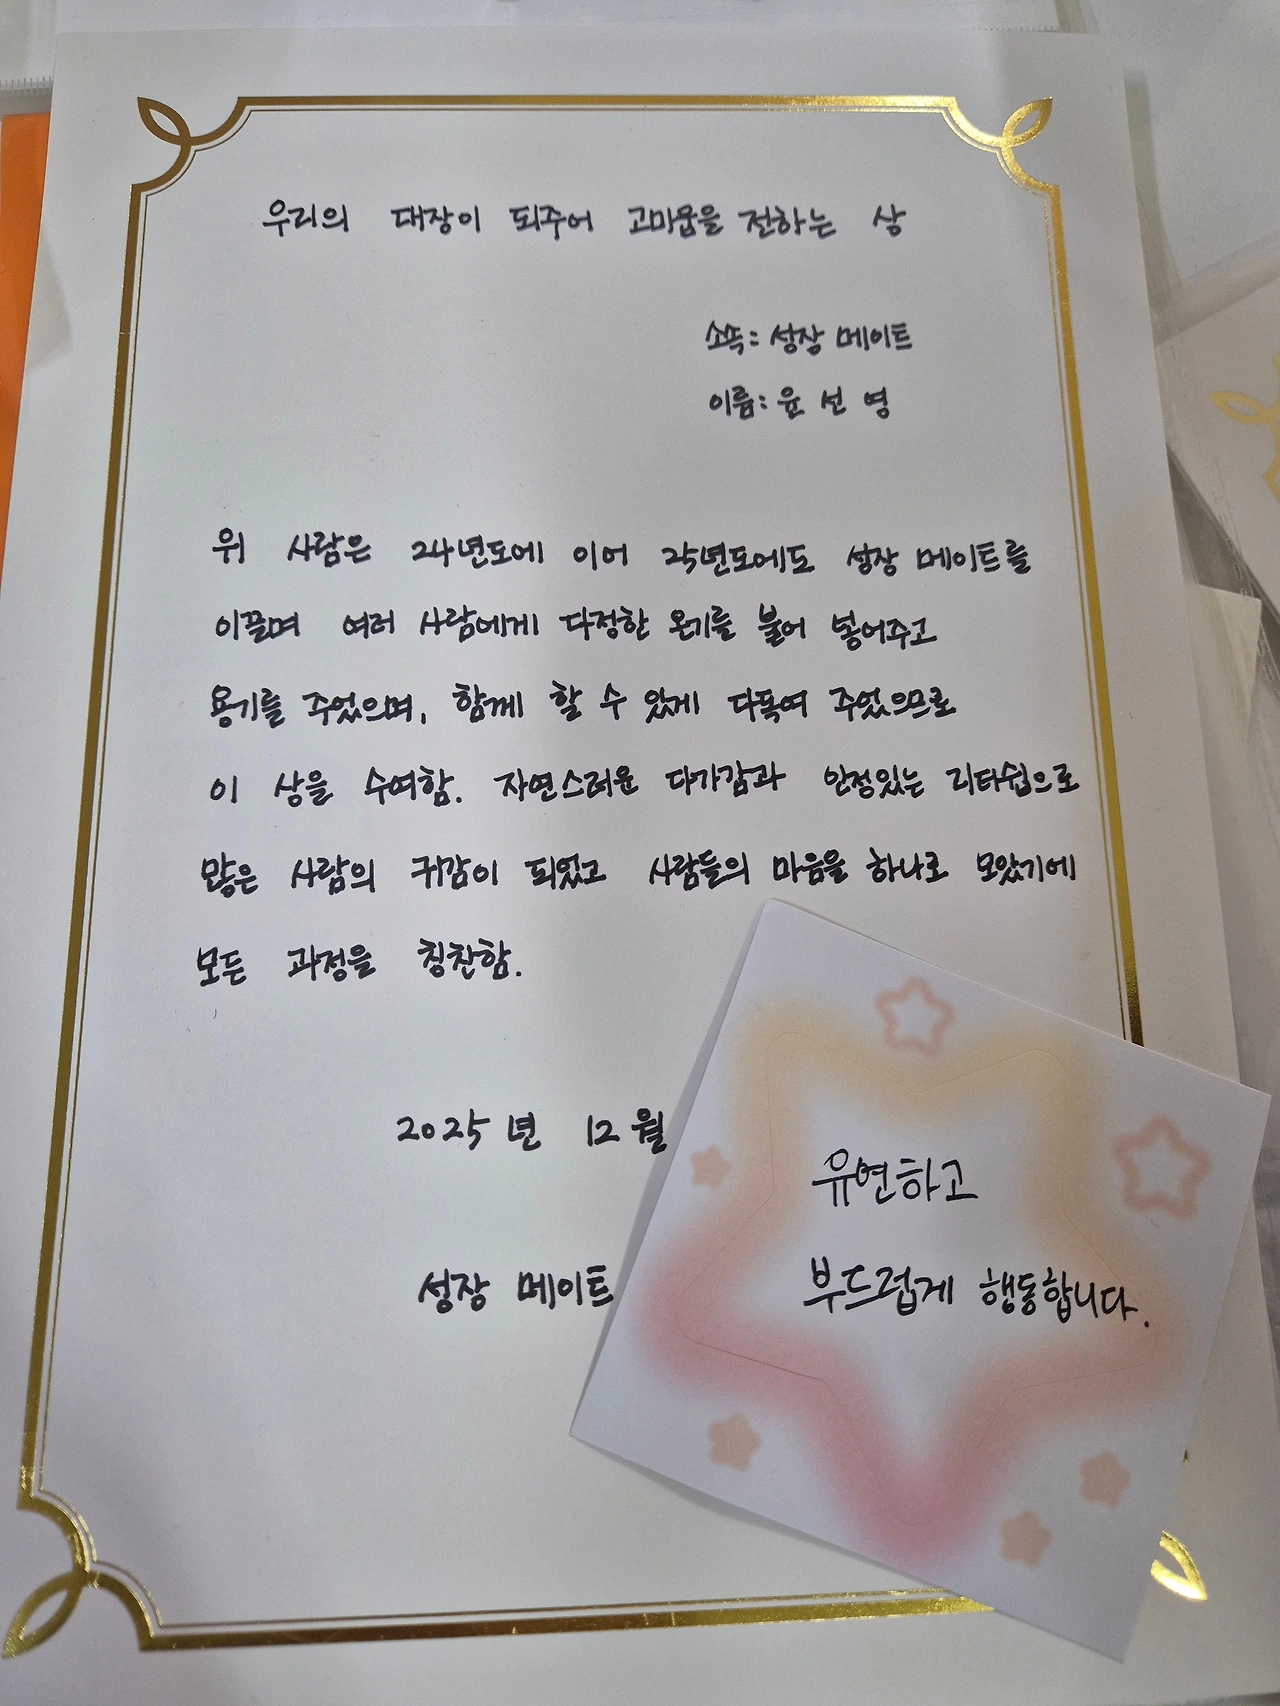 우리의 대장이 되주어 고마움을 전하는 상
소속: 성장 메이트
이름: 윤 선 영
위 사람은 24년도에 이어 25년도에도 성장 메이트를
이끌며 여러 사람에게 다정한 온기를 불어 넣어주고
용기를 주었으며, 함께 할 수 있게 다독여 주었으므로
이 상을 수여함. 자연스러운 다가감과 안정있는 리더쉽으로
많은 사람의 귀감이 되었고 사람들의 마음을 하나로 모았기에
모든 과정을 칭찬함.
2025년 12월
성장 메이트
유연하고
부드럽게 행동합니다.